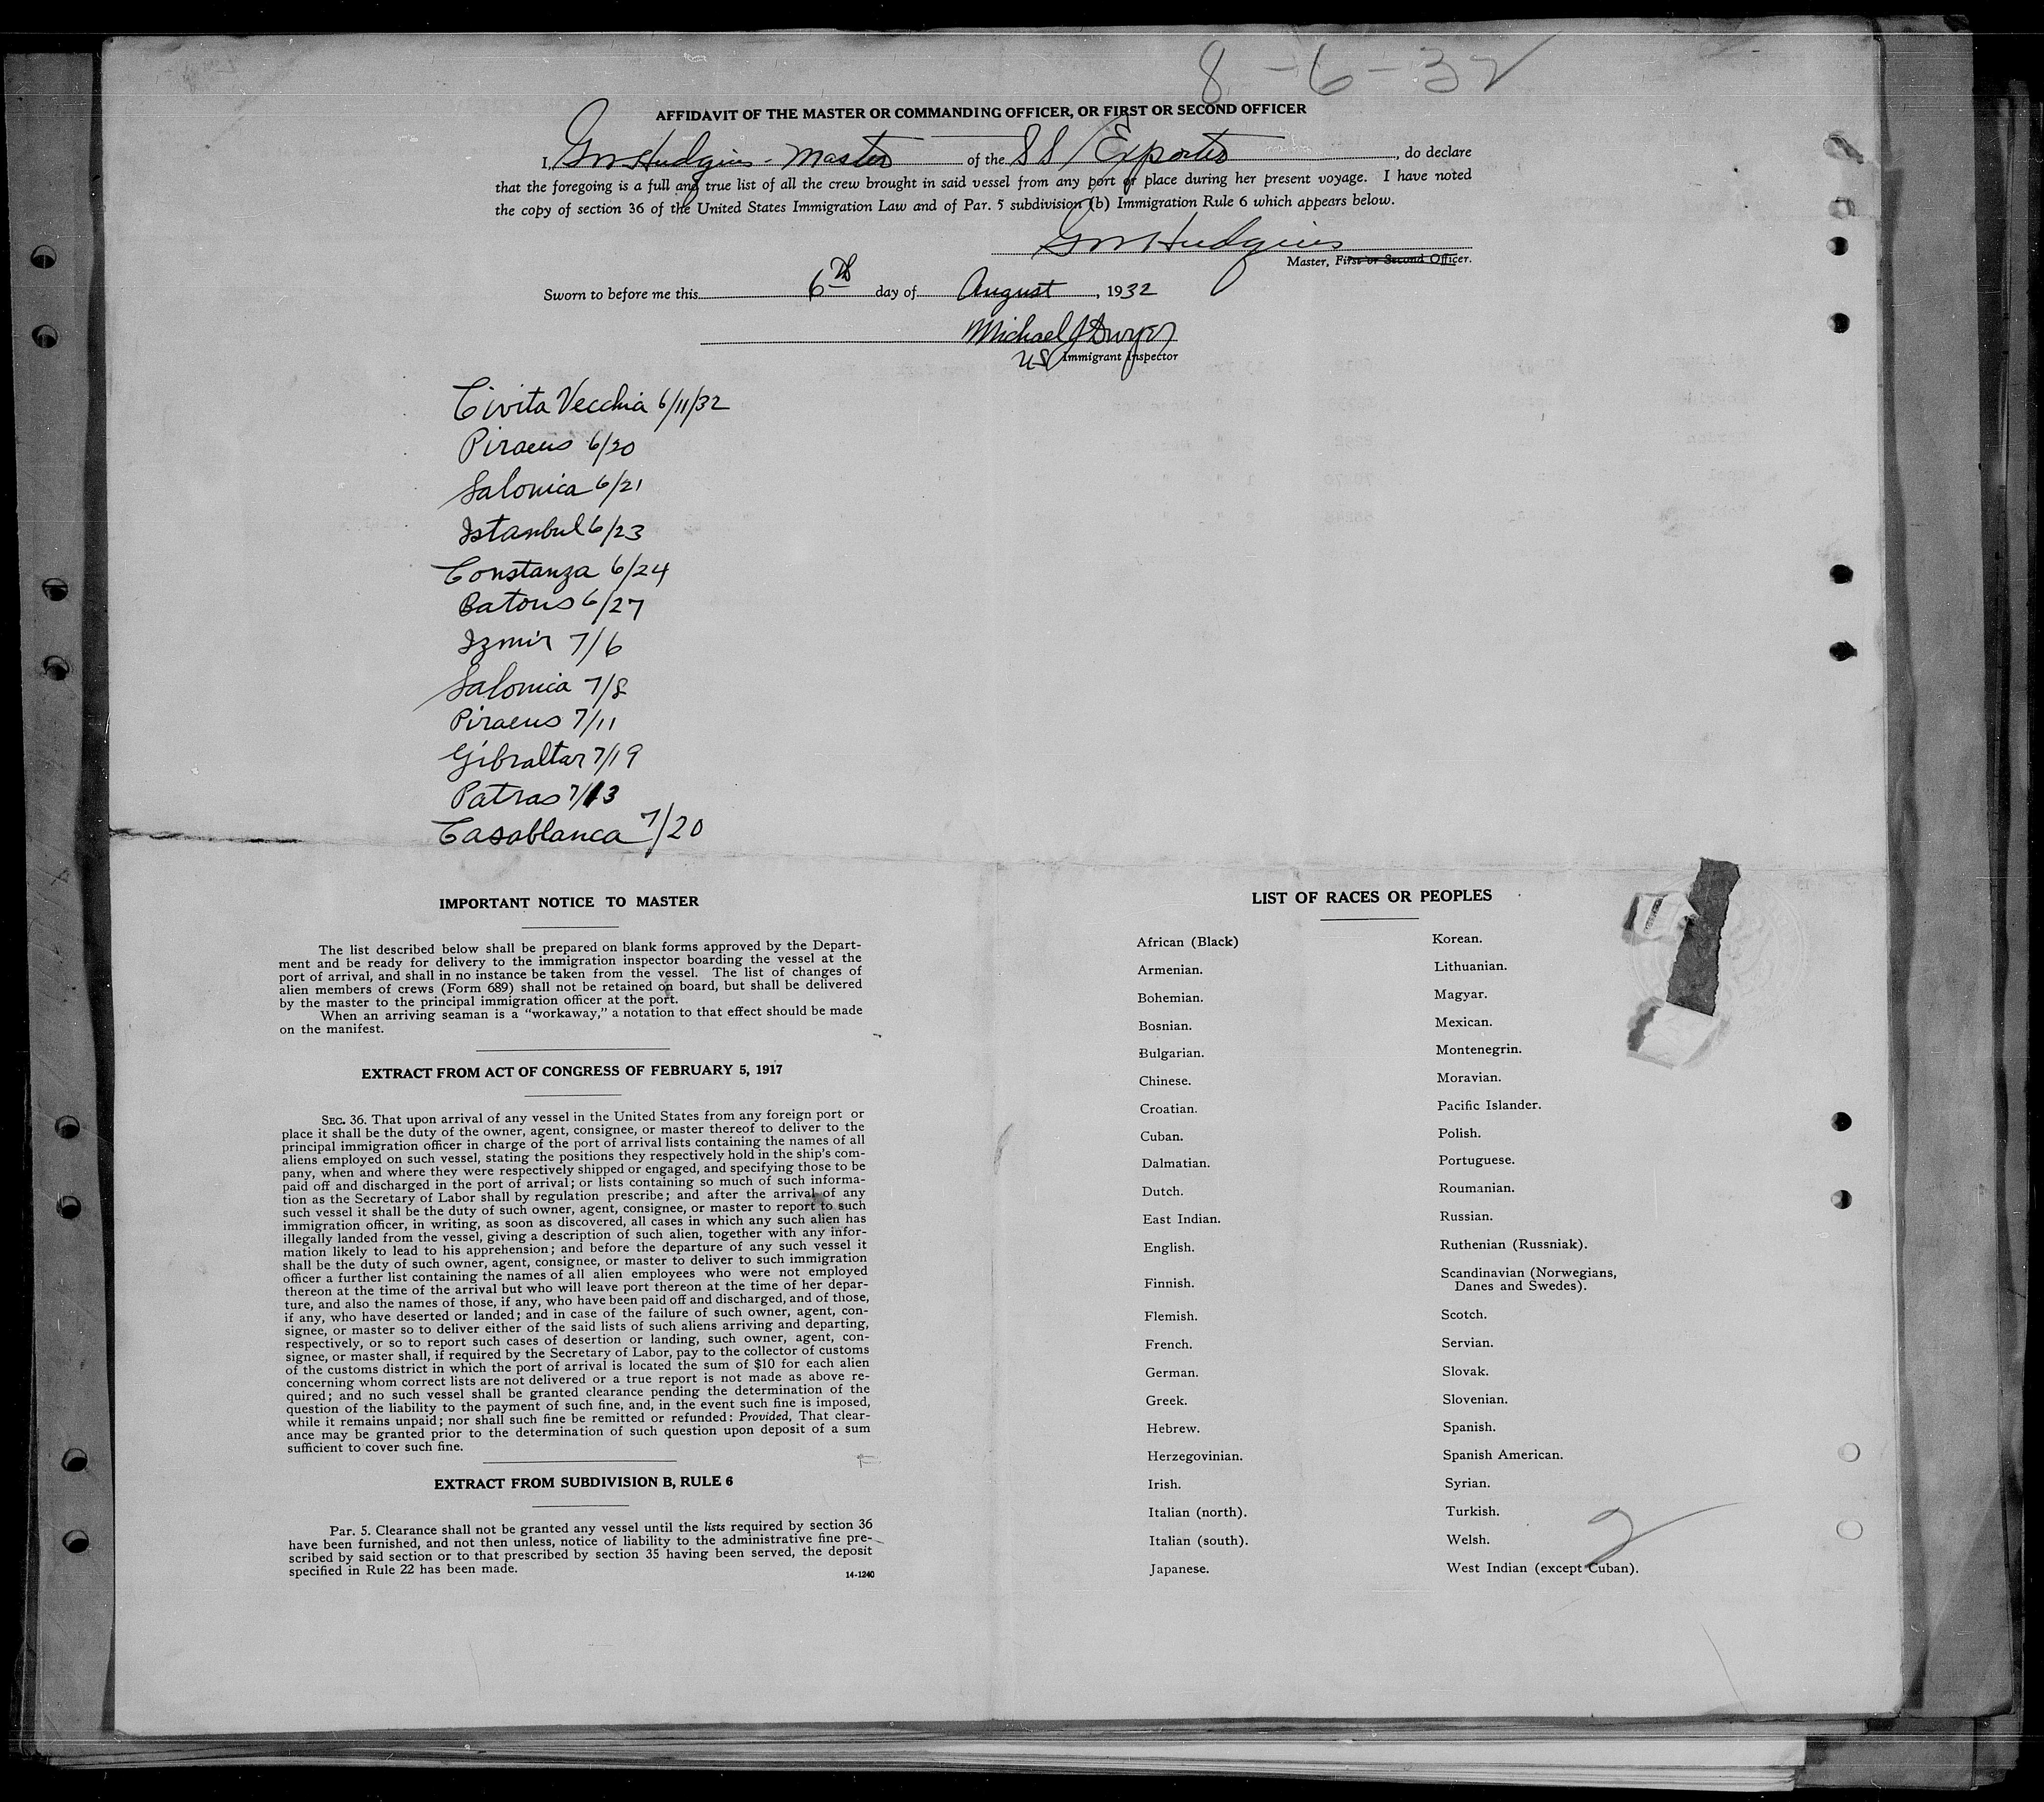 8-6-32
AFFIDAVIT OF THE MASTER OR COMMANDING OFFICER, OR FIRST OR SECOND OFFICER
I, GM Hudgins - Master of the SS Exporter, do declare
that the foregoing is a full and true list of all the crew brought in said vessel from any port or place during her present voyage. I have noted
the copy of section 36 of the United States Immigration Law and of Par. 5 subdivision (b) Immigration Rule 6 which appears below.
GM Hudgins
Master, First or Second Officer.
Sworn to before me this 6th day of August, 1932
Michael J Dwyer
US Immigrant Inspector
Civita Vecchia 6/11/32
Piraeus 6/20
Salonica 6/21
Istanbul 6/23
Constanza 6/24
Batous 6/27
Izmir 7/6
Salonica 7/8
Piraeus 7/11
Gibraltar 7/19
Patras 7/13
Casablanca 7/20
IMPORTANT NOTICE TO MASTER
The list described below shall be prepared on blank forms approved by the Depart-
ment and be ready for delivery to the immigration inspector boarding the vessel at the
port of arrival, and shall in no instance be taken from the vessel. The list of changes of
alien members of crews (Form 689) shall not be retained on board, but shall be delivered
by the master to the principal immigration officer at the port.
When an arriving seaman is a “workaway,” a notation to that effect should be made
on the manifest.
EXTRACT FROM ACT OF CONGRESS OF FEBRUARY 5, 1917
SEC. 36. That upon arrival of any vessel in the United States from any foreign port or
place it shall be the duty of the owner, agent, consignee, or master thereof to deliver to the
principal immigration officer in charge of the port of arrival lists containing the names of all
aliens employed on such vessel, stating the positions they respectively hold in the ship's com-
pany, when and where they were respectively shipped or engaged, and specifying those to be
paid off and discharged in the port of arrival; or lists containing so much of such informa-
tion as the Secretary of Labor shall by regulation prescribe; and after the arrival of any
such vessel it shall be the duty of such owner, agent, consignee, or master to report to such
immigration officer, in writing, as soon as discovered, all cases in which any such alien has
illegally landed from the vessel, giving a description of such alien, together with any infor-
mation likely to lead to his apprehension; and before the departure of any such vessel it
shall be the duty of such owner, agent, consignee, or master to deliver to such immigration
officer a further list containing the names of all alien employees who were not employed
thereon at the time of the arrival but who will leave port thereon at the time of her depar-
ture, and also the names of those, if any, who have been paid off and discharged, and of those,
if any, who have deserted or landed; and in case of the failure of such owner, agent, con-
signee, or master so to deliver either of the said lists of such aliens arriving and departing,
respectively, or so to report such cases of desertion or landing, such owner, agent, con-
signee, or master shall, if required by the Secretary of Labor, pay to the collector of customs
of the customs district in which the port of arrival is located the sum of $10 for each alien
concerning whom correct lists are not delivered or a true report is not made as above re-
quired; and no such vessel shall be granted clearance pending the determination of the
question of the liability to the payment of such fine, and, in the event such fine is imposed,
while it remains unpaid; nor shall such fine be remitted or refunded: Provided, That clear-
ance may be granted prior to the determination of such question upon deposit of a sum
sufficient to cover such fine.
EXTRACT FROM SUBDIVISION B, RULE 6
Par. 5. Clearance shall not be granted any vessel until the lists required by section 36
have been furnished, and not then unless, notice of liability to the administrative fine pre-
scribed by said section or to that prescribed by section 35 having been served, the deposit
specified in Rule 22 has been made.
14-1240
LIST OF RACES OR PEOPLES
African (Black)
Armenian.
Bohemian.
Bosnian.
Bulgarian.
Chinese.
Croatian.
Cuban.
Dalmatian.
Dutch.
East Indian.
English.
Finnish.
Flemish.
French.
German.
Greek.
Hebrew.
Herzegovinian.
Irish.
Italian (north).
Italian (south).
Japanese.
Korean.
Lithuanian.
Magyar.
Mexican.
Montenegrin.
Moravian.
Pacific Islander.
Polish.
Portuguese.
Roumanian.
Russian.
Ruthenian (Russniak).
Scandinavian (Norwegians,
Danes and Swedes).
Scotch.
Servian.
Slovak.
Slovenian.
Spanish.
Spanish American.
Syrian.
Turkish.
Welsh.
West Indian (except Cuban).
2